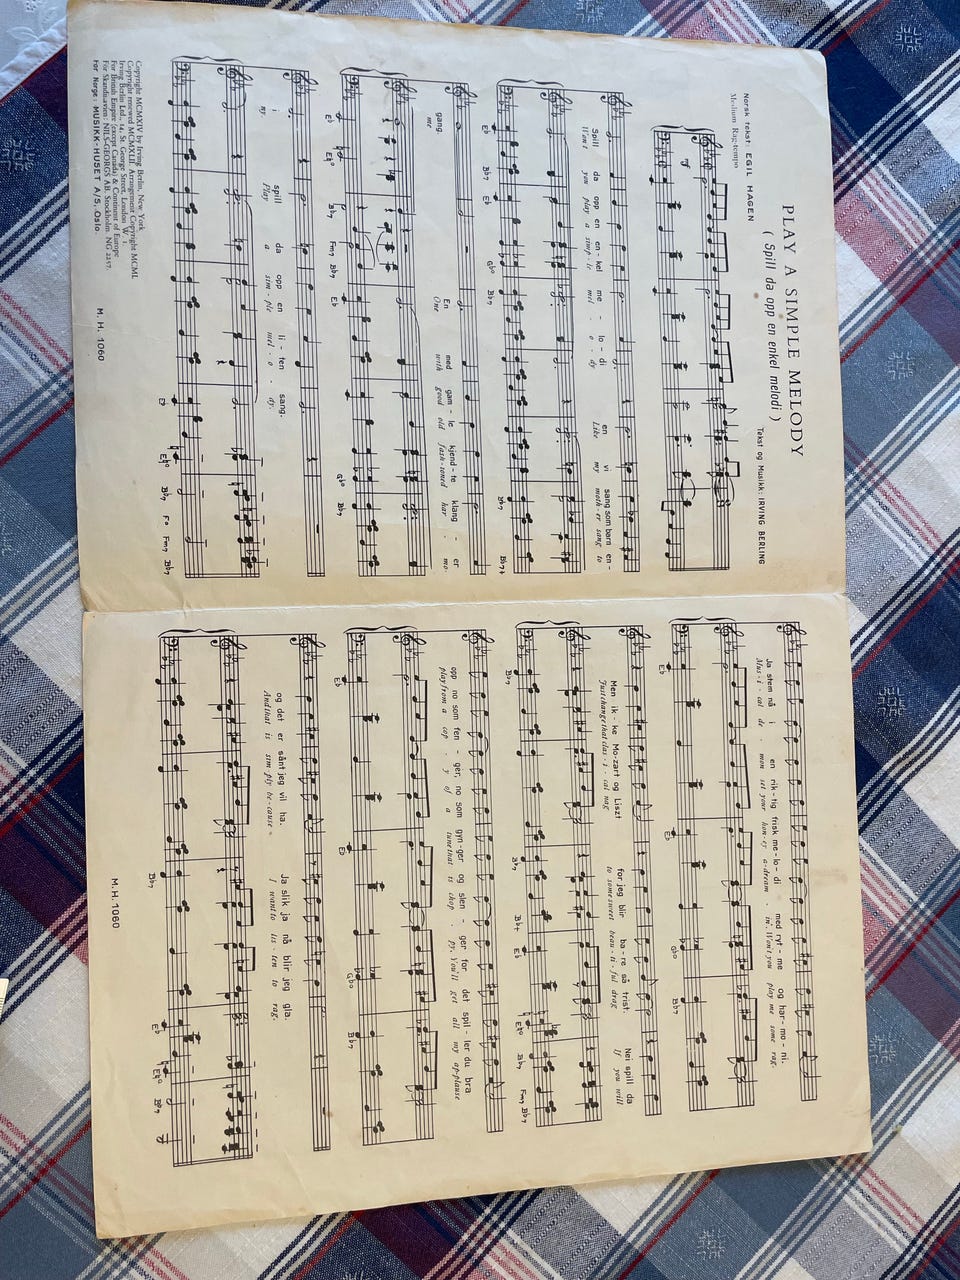 PLAY A SIMPLE MELODY
( Spill da opp en enkel melodi )
Norsk tekst: EGIL HAGEN
Tekst og Musikk: IRVING BERLING
Medium Rag-tempo
Spill da opp en en - kel me - lo - di en vi sang som barn en -
Won't you play a simp - le mel - o - dy Like my moth - er sang to
Eb Bb7 Gbo Bb7 Bb7 Bb7+
gang. En med gam - le kjend - te klang - er
me One with good old fash - ioned har - mo -
Eb Ebo Bb7 Fm7 Bb7 Eb Gbo Bb7
i spill da opp en li - ten sang.
ny. Play a sim - ple mel - o - dy.
Eb Ebo Bb7 Fo Fm7 Bb7
Copyright MCMXIV by Irving Berlin, New York
Copyright renewed MCMXLII. Arrangement Copyright MCML
Irving Berlin Ltd., 14, St. George Street, London W. 1.
For British Empire (except Canada) & Continent of Europe
For Skandinavien: NILS-GEORGS AB. Stockholm. NG 2257.
For Norge: MUSIKK-HUSET A/S. Oslo.
M. H. 1060
Ja stem nå i en rik - tig frisk me - lo - di med ryt - me og har - mo - ni.
Mus - i - cal de - mon set your hon - ey a-dream - in'. Won't you play me some rag.
Eb Eb Gbo Bb7
Men ik - ke Mo-zart og Liszt for jeg blir ba - re så trist. Nei spill da
Just change that clas - i - cal nag to some sweet beau - ti - ful drag If you will
Bb7 Bb7 Bb+ Eb Ebo Bb7 Fm7 Bb7
opp no som fen - ger, no som gyn - ger og slen - ger for det spil - ler du bra
play from a cop - y of a tune that is chop - py. You'll get all my ap-plause
Eb Eb Gbo Bb7
og det er sånt jeg vil ha. Ja slik ja nå blir jeg gla.
And that is sim - ply be-cause I want to lis - ten to rag.
Bb7 Bb7 Eb Ebo Bb7
M. H. 1060